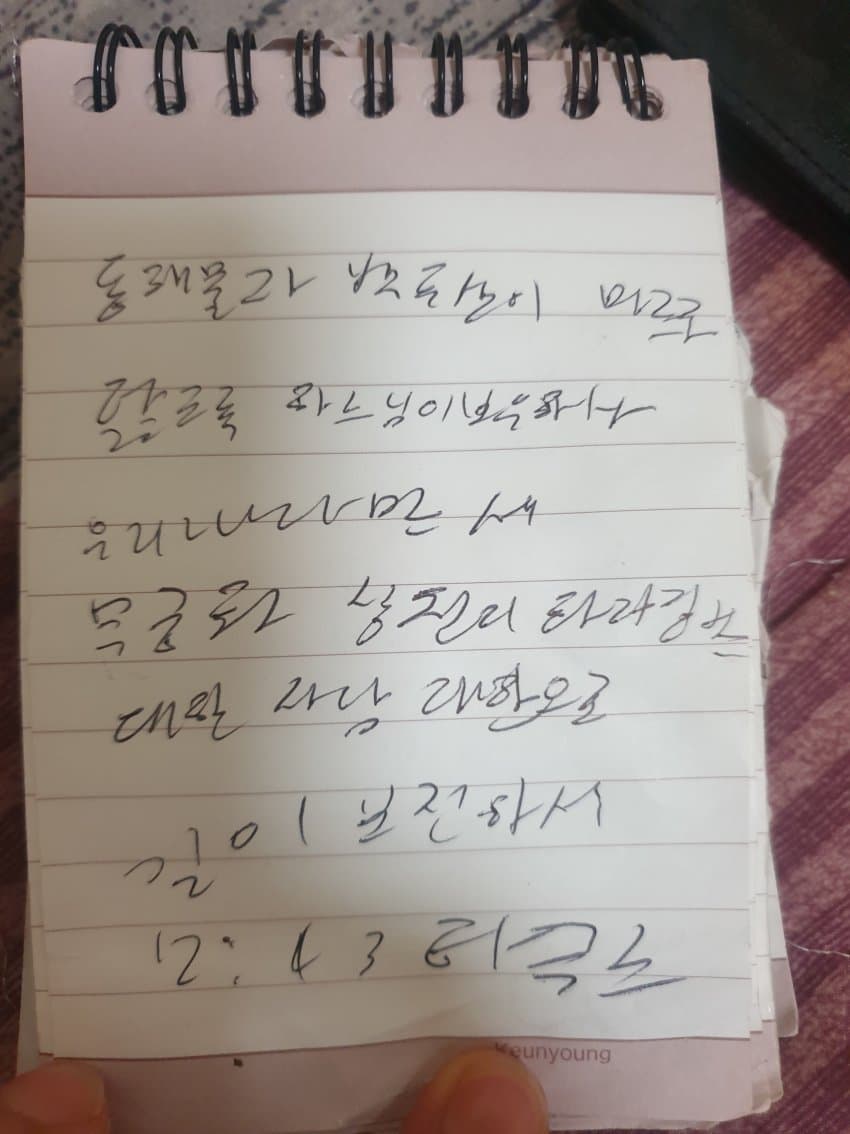 동해물과 백두산이 마르
닳도록 하느님이보우하사
우리나라만세
무궁화 삼천리 화려강산
대한 사람 대한으로
길이 보전하세
Keunyoung